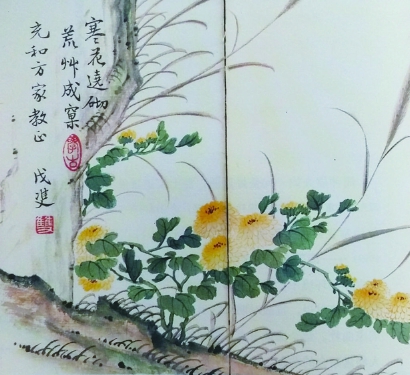 寒花遶砌
荒艸成窠
充和方家教正
戊雙